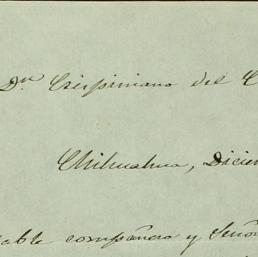 Dn. Crispiniano del C
Chihuahua, Dicie
able compañero y Señor